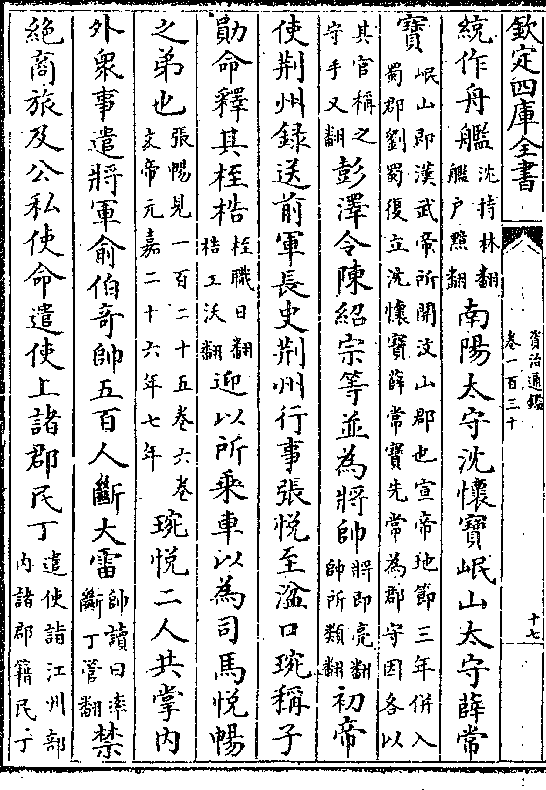 欽定四庫全書
資治通鑑
卷一百三十
十七
統作舟艦沈持林翻艦户黯翻南陽太守沈懷寶岷山太守薛常
寶岷山即漢武帝所開汶山郡也宣帝地節三年併入蜀郡劉蜀復立沈懷寶薛常寶先常為郡守因各以
其官稱之守手又翻彭澤令陳紹宗等並為將帥將即亮翻帥所類翻初帝
使荆州錄送前軍長史荆州行事張悦至湓口琬稱子
勛命釋其桎梏桎職日翻梏工沃翻迎以所乗車以為司馬悦暢
之弟也張暢見一百二十五卷六卷文帝元嘉二十六年七年琬悦二人共掌内
外衆事遣將軍俞伯奇帥五百人斷大雷帥讀曰率斷丁管翻禁
絶商旅及公私使命遣使上諸郡民丁遣使詣江州部内諸郡籍民丁